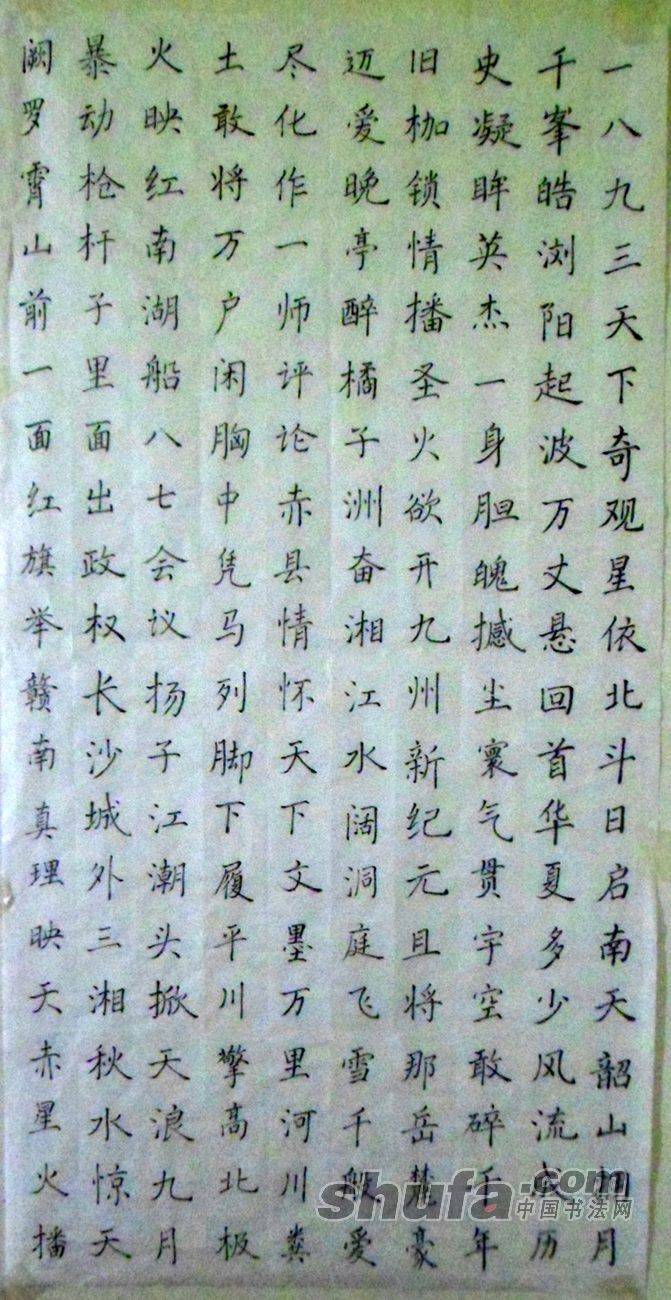 一八九三天下奇观星依北斗日启南天韶山月
千峯皓浏阳起波万丈悬回首华夏多少风流成历
史凝眸英杰一身胆魄撼尘寰气贯宇空敢碎千年
旧枷锁情播圣火欲开九州新纪元且将那岳麓豪
迈爱晚亭醉橘子洲奋湘江水阔洞庭飞雪千般爱
尽化作一师评论赤县情怀天下文墨万里河川粪
土敢将万户闲胸中凭马列脚下履平川擎高北极
火映红南湖船八七会议扬子江潮头掀天浪九月
暴动枪杆子里面出政权长沙城外三湘秋水惊天
阙罗霄山前一面红旗举赣南真理映天赤星火播
shufa.com
中国书法网